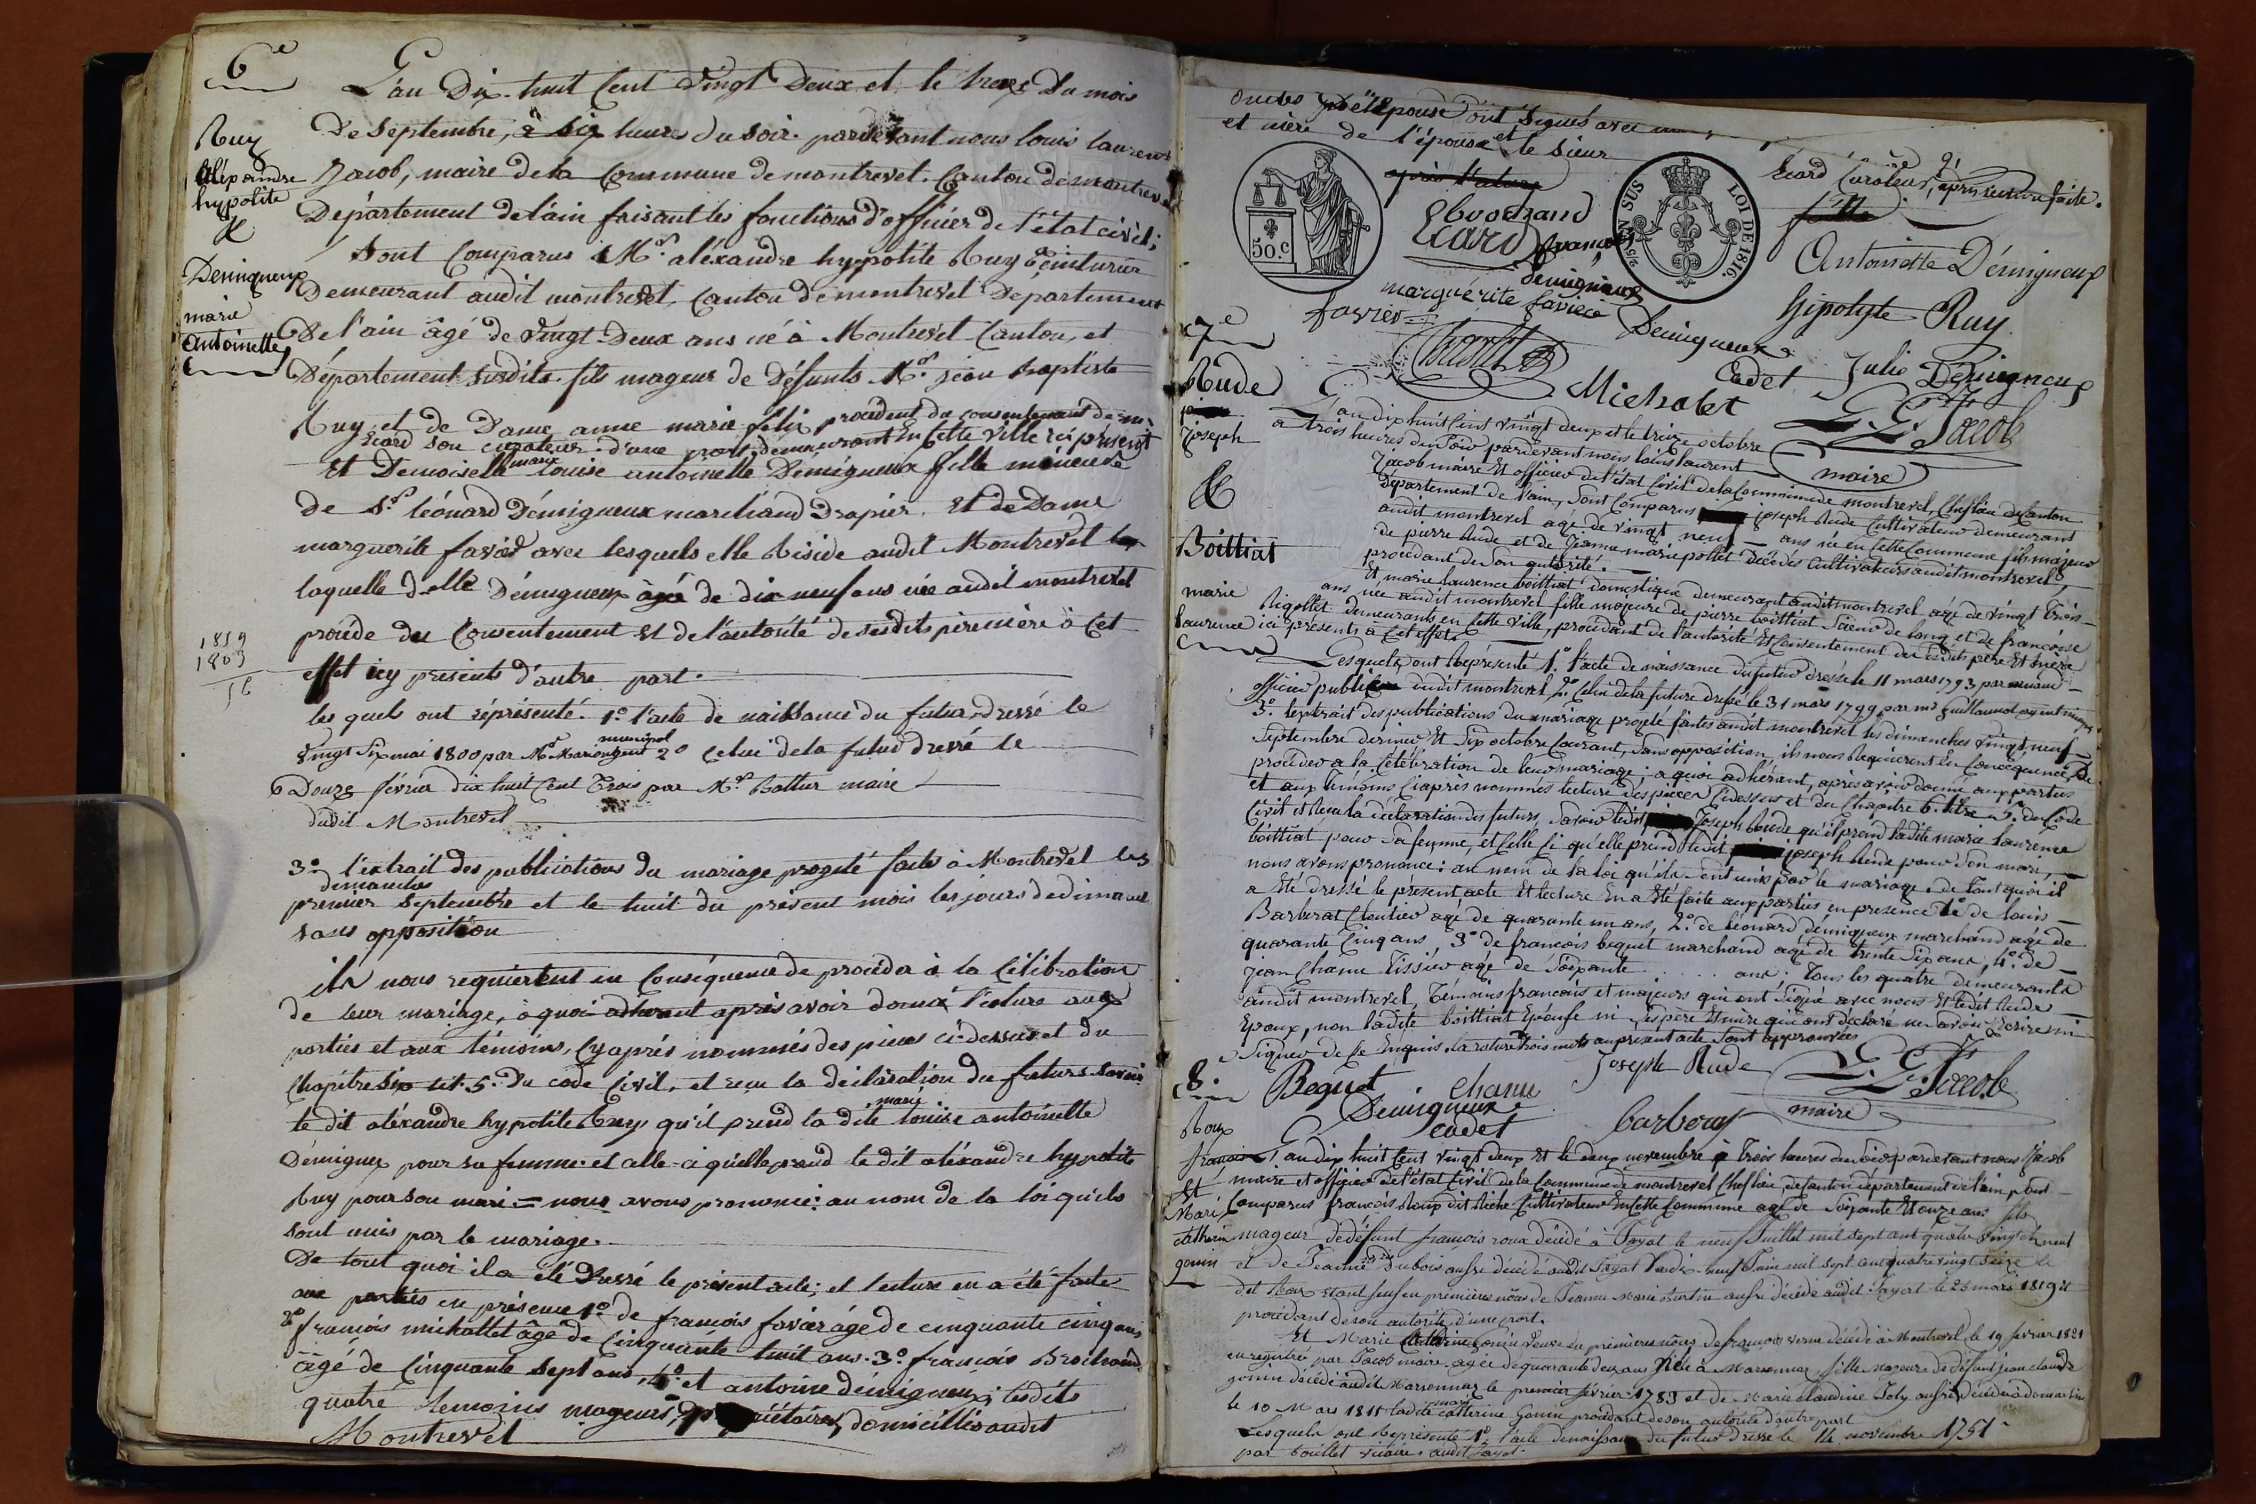 6e
L'an Dix huit Cent Vingt Deux et le treize Du mois
De Septembre, à six heures du soir pardevant nous louis laurent
Jacob, maire de la Commune de montrevel, Canton de montrevel
Département de l'ain faisant les fonctions d'officier de l'état civil;
Sont Comparus Mr alexandre hypolite Ruy teinturier
Demeurant audit montrevel, Canton de montrevel Departement
De l'ain âgé de Vingt-Deux ans né à Montrevel Canton, et
Département susdits fils mageur de Défunts Mr jean baptiste
Ruy et de Dame anne marie félix procédent du consentement de mr
Ecard son curateur d'une part, demeurant En Cette Ville ici présent
Et Demoiselle marie louise antoinette Démigneux fille mineure
de Sr léonard Démigneux marchand Drapier. Et de Dame
marguerite favier avec lesquels elle Réside audit Montrevel
laquelle Delle Démigneux âgée de dix neuf ans née audit montrevel
procède du Consentement Et de l'autorité de sesdits père mère à Cet
effet icy presents d'autre part.
les quels ont réprésenté. 1o l'acte de naissance du futur dressé le
Vingt Six mai 1800 par Mr Marion agent municipal 2o celui de la future dressé le
Douze février dix huit Cent Trois par Mr Battur maire
dudit Montrevel
3o l'extrait des publications du mariage progeté faites à Montrevel les
dimanches
premier septembre et le huit du présent mois les jours de dimanche
sans opposition
ils nous requierent en Conséquence de procéder à la Célébration
de leur mariage, à quoi adhérant après avoir donné lecture aux
parties et aux témoins, Cy après nommés des pieces ci-dessus et du
Chapitre Six tit. 5. du code Civil, et reçu la déclaration des futurs savoir
le dit aléxandre hypolite Ruy qu'il prend la dite marie louise antoinette
Démigneux pour sa femme et celle-ci qu'elle prend le dit aléxandre hypolite
Ruy pour son mari = nous avons prononcé: au nom de la loi qu'ils
sont unis par le mariage.
De tout quoi il a été Dressé le présent acte; et lecture en a été faite
aux parties en présence 1o de francois favier âgé de cinquante cinq ans
2o francois michallet âgé de Cinquante huit ans. 3o francois Brochand
âgé de Cinquante Sept ans, 4o et antoine démigneux; lesdits
quatre temoins mageurs, propriétaires, domicilliés audit
Montrevel
Ruy
Aléxandre
hypolite
&
Demigneux
marie
antoinette
1819
1803
16
et mère de l'épouse et le sieur
Ecard Curateur, après lecture faite.
50.c
LOI DE 1816.
Ecard
françois
démigneux
Antoinette Démigneux
marguerite favier
favier
Demigneux
Cadet
Hipolyte Ruy
Julie Démigneux
Michalet
L. L. Jacob
maire
7e
Rude
joseph
&
Boittiat
marie
laurence
L'an dix huit Cent vingt deux et le treize octobre
à trois heures du Soir pardevant nous louis laurent
Jacob maire Et officier de l'état Civil de la Commune de montrevel, Cheflieu de Canton
Département de l'ain, Sont Comparus joseph Rude Cultivateur demeurant
audit montrevel agé de vingt neuf ans né en Cette Commune fils majeur
de pierre Rude et de Jeanne marie pollet décédés Cultivateurs audit montrevel,
procédant de Son autorité.
Et marie laurence boittiat domestique demeurant audit montrevel agé de vingt trois
ans née audit montrevel fille majeure de pierre boittiat Scieur de long et de francoise
Rigollet demeurants en Cette Ville, procédant de l'autorité Et Consentement des Sesdits pere Et mere
ici présents à Cet effet.
Lesquels ont Représenté 1.o l'acte de naissance du futur dressé le 11 mars 1793 par
officier public dudit montrevel 2o Celui de la future dressé le 31 mars 1799 par mr Guillaumot agent
3o l'extrait des publications du mariage projeté faites audit montrevel les dimanches vingt neuf
Septembre dernier Et Six octobre Courant, Sans opposition, ils nous Requierent En Conséquence De
procéder à la Célébration de leur mariage; à quoi adhérant, après avoir donné aux parties
et aux témoins Ciaprès nommés lecture des pieces Cidessus et du Chapitre 6. titre 5e du Code
Civil et Reçu la déclaration des futurs, Savoir ledit Joseph Rude qu'il prend ladite marie laurence
boittiat pour Sa femme, et Celle Ci qu'elle prend ledit joseph Rude pour Son mari,
nous avons prononcé: au nom de la loi qu'ils Sont unis par le mariage. de Tout quoi il
a été dressé le présent acte Et lecture En a été faite aux parties en présence 1o de louis
Barberat Cloutier agé de quarante un ans, 2o de léonard démigneux marchand agé de
quarante Cinq ans, 3o de francois bequet marchand agé de trente Six ans, 4o de
Jean Chanu Tissier agé de Soixante ans: tous les quatre demeurants
audit montrevel, Témoins francais et majeurs qui ont Signé avec nous Et ledit Rude
Epoux, non ladite boittiat Epouse ni Ses pere Et mere qui ont déclaré ne Savoir Ecrire ni
Signer de Ce Enquis. la rature trois mots au présent acte Sont approuvés
Bequet
Chanu
Joseph Rude
L. L. Jacob
maire
Demigneux
cadet
barberat
8.
Roux
francois
Et
Marie
Catherine
gonin
L'an dix huit Cent vingt deux Et le deux novembre à Trois heures du Soir pardevant nous Jacob
maire et officier de l'état Civil de la Commune de montrevel Cheflieu, de Canton département de l'ain, Sont
Comparus francois Roux dit Riche Cultivateur En Cette Commune agé de Soixante Et onze ans fils
mageur de défunt francois roux décédé à Jayat le neuf Juillet mil sept cent quatre vingt neuf
et de Jeanne Dubois aussi décédé audit Jayat Vendi neuf Juin mil sept cent quatre vingt Seize le
dit Roux étant Veuf en premieres nôces de Jeanne Marie aussi décédé audit Jayat le 25 mars 1819 et
procédant de son autorité d'une part.
Et Marie Catherine Gonin Veuve en premieres nôces de francois Verne décédé à Montrevel le 19 fevrier 1821
enregistré par Jacob maire agée de quarante deux ans Née à Marsonnas, fille Mageure de défunt jean claude
gonin décédé audit Marsonnas le premier fevrier 1789 et de Marie Claudine Joly aussi décédée à
le 10 Mars 1815 ladite marie Catherine Gonin procédant de son autorité d'autre part
Lesquels ont Représenté 1o l'acte de naissance du futur dressé le 14 novembre 1751
par boillet vicaire audit Jayat.